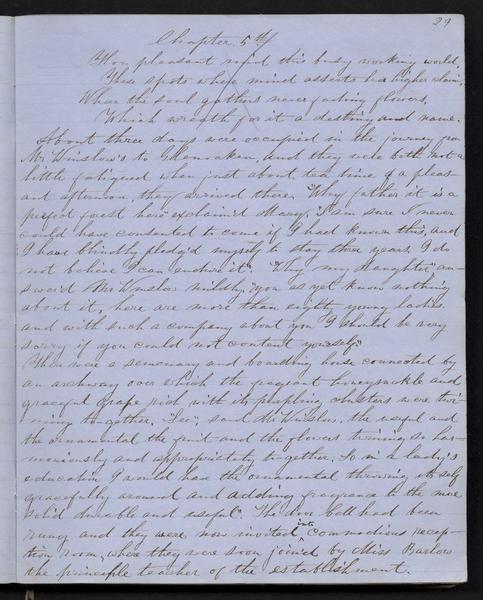 29
Chapter 5th
How pleasant mid this busy working world,
These spots where mind asserts her higher claim,
Where the soul gathers never fading flowers,
Which wreath for it a destiny and name.
About three days were occupied in the journey from
Mr Winslow's to Glenoraken, and they were both not a
little fatigued when just about tea time of a pleas-
ant afternoon, they arrived there. "Why father it is a
perfect forest here" exclaim'd Mary, "I am sure I never
could have consented to come if I had known this, and
I have blindly pledg'd myself to stay three years, I do
not believe I can endure it." "Why my daughter" an-
swer'd Mr Winslow mildly, "you as yet know nothing
about it, here are more than eighty young ladies
and with such a company about you I should be very
sorry if you could not content yourself."
There were a semenary and boarding house connected by
an archway over which the fragrant honeysuckle and
graceful grape rich with its purpling clusters were twi-
ning together. "See", said Mr Winslow, the useful and
the ornamental the fruit and the flowers twining so har-
moniously and appropriately together. So in a lady's
education I would have the ornamental throwing itself
gracefully around and adding fragrance to the more
solid durable and useful." The door bell had been
rung and they were now invited into commodious recep-
tion room, where they were soon join'd by Miss Barlow
the principle teacher of the establishment.